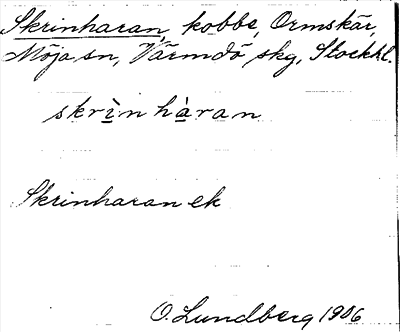 Skrinharan, kobbe, Ormskär,
Möja sn, Värmdö skg, Stockhl.
skrìn hàran
Skrinharan ek
O. Lundberg 1906